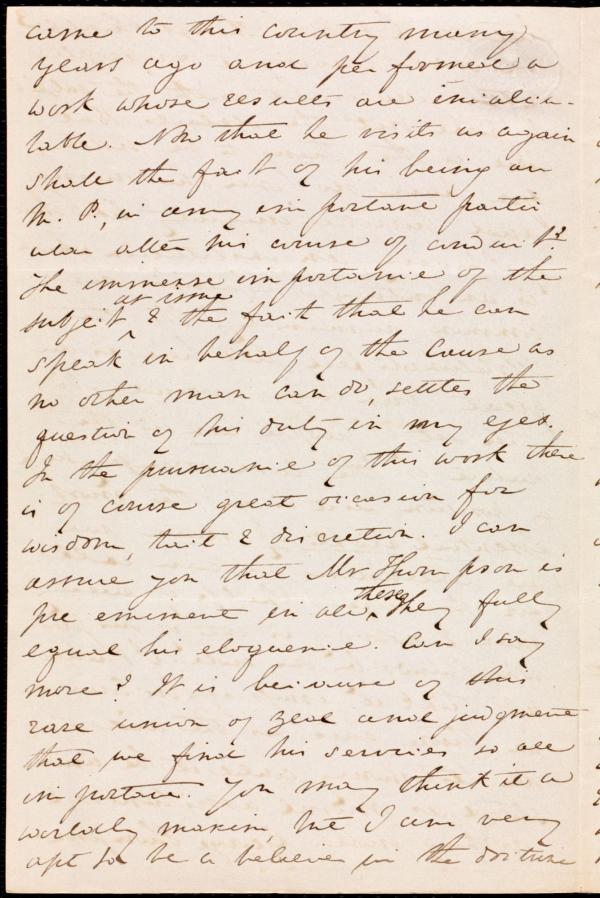 came to this country many
years ago and performed a
work whose results are incalcu-
lable. Now that he visits us again
shall the fact of his being an
M. P., in any important parti
cular alter his course of conduct?
The immense importance of the
subject & the fact that he can
at issue
speak in behalf of the Cause as
no other man can do, settles the
question of his duty in my eyes.
In the pursuance of this work there
is of course great occasion for
wisdom, tact & discretion. I can
assure you that Mr Thompson is
pre eminent in all these. They fully
equal his eloquence. Can I say
more? It is because of this
rare union of zeal and judgment
that we find his services so all
important. You may think it a
worldly maxim, but I am very
apt to be a believer in the doctrine